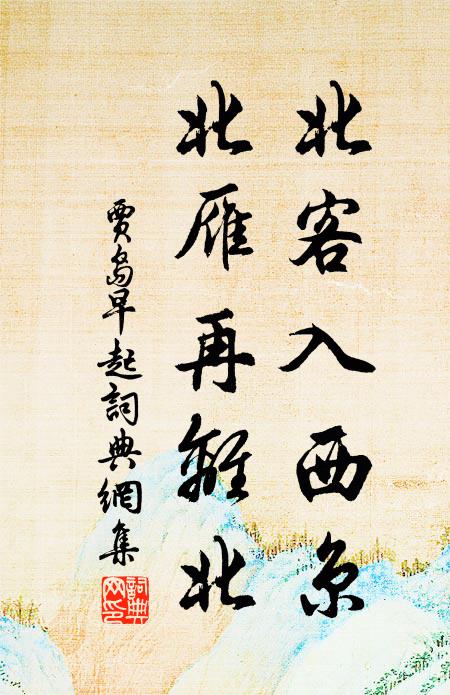 北客入西京
北雁再離北
賈島早起詞典網集
詞典網印